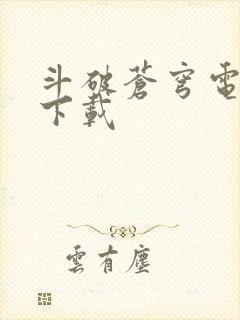 斗破蒼穹電
下載
雲有塵